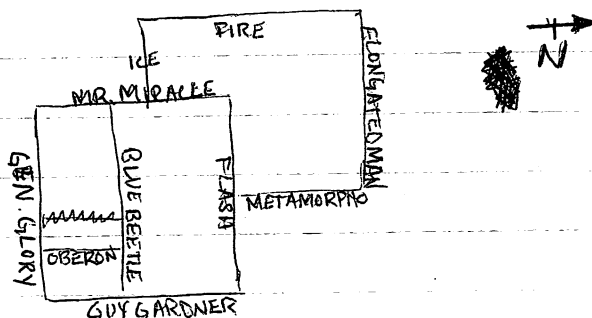 FIRE
N
ICE
ELONGATEDMAN
MR. MIRACLE
GEN. GLORY
BLUE BEETLE
FLASH
METAMORPHO
OBERON
GUY GARDNER